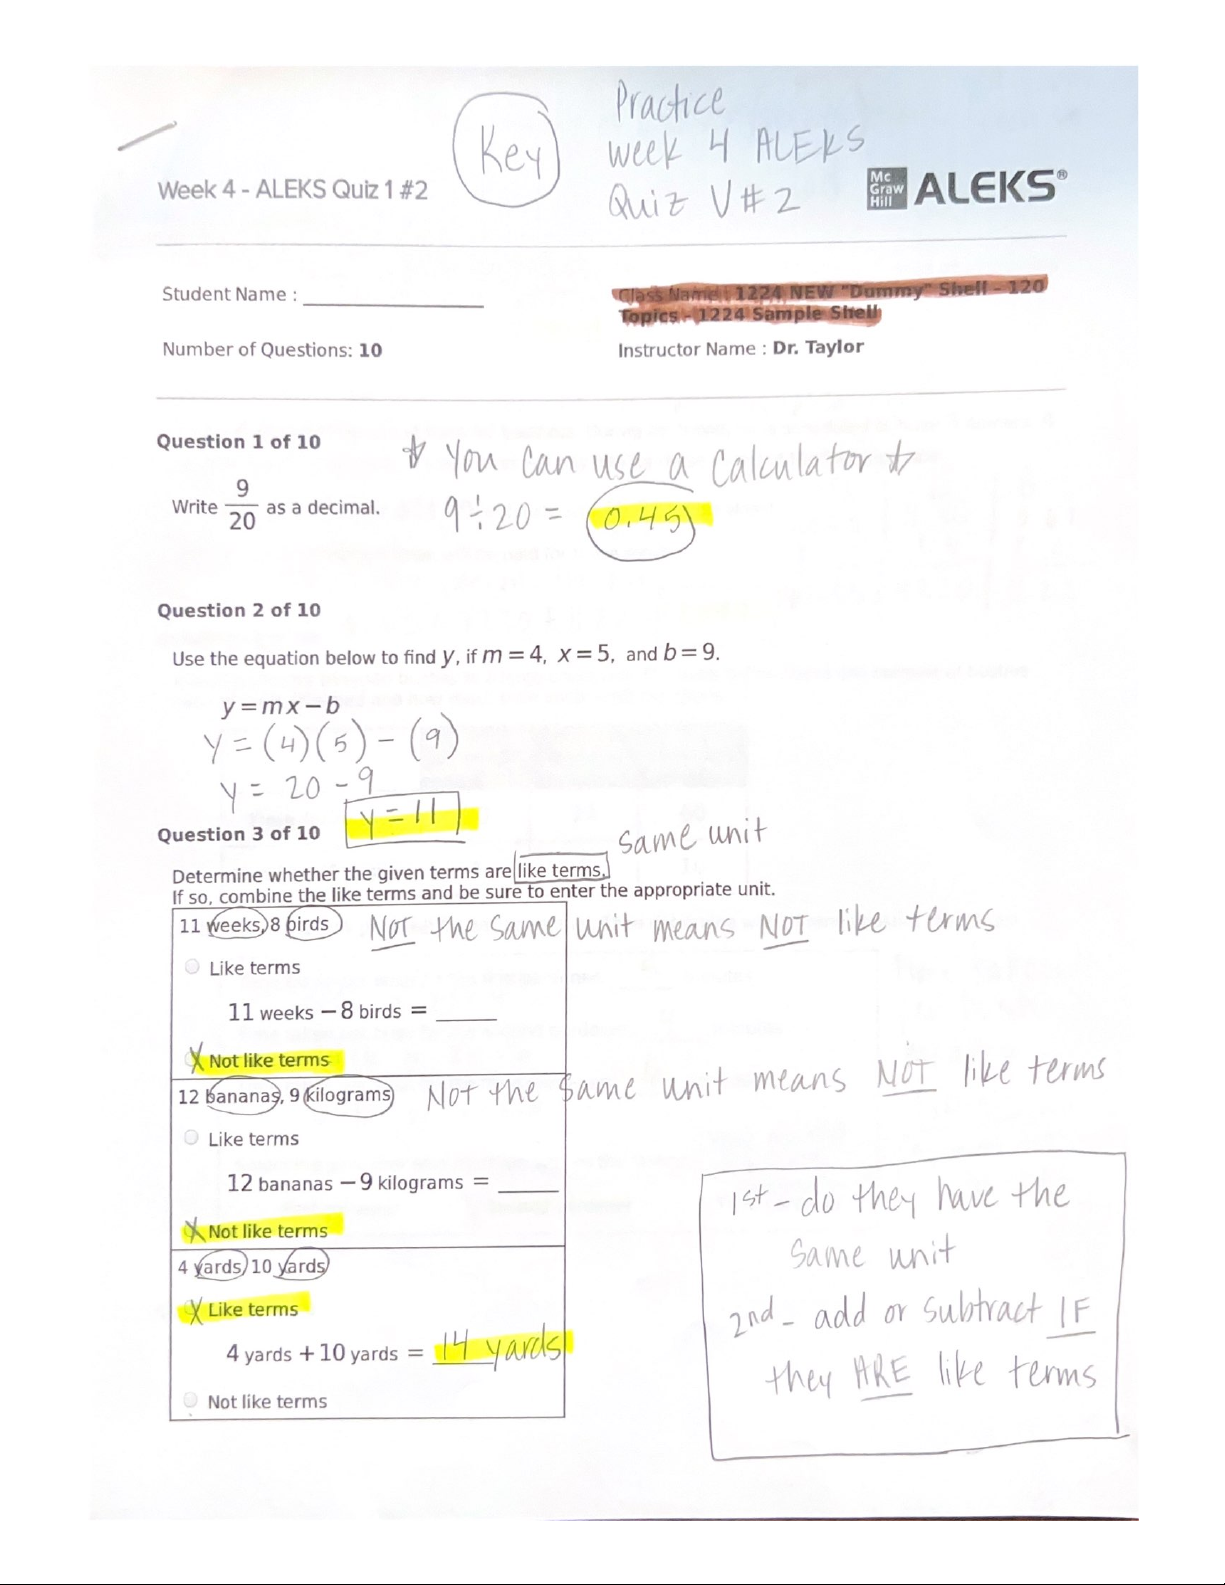 Practice
Key
week 4 ALEKS
Week 4 - ALEKS Quiz 1 #2
Quiz V#2
Mc Graw Hill ALEKS®
Student Name : 
Class Name : 1224 NEW "Dummy" Shell - 120
Topics - 1224 Sample Shell
Number of Questions: 10
Instructor Name : Dr. Taylor
Question 1 of 10
☆ You can use a calculator ☆
Write 9/20 as a decimal.
9÷20 = 0.45
Question 2 of 10
Use the equation below to find y, if m = 4, x = 5, and b = 9.
y = mx − b
y = (4)(5) - (9)
y = 20 - 9
y = 11
Question 3 of 10
same unit
Determine whether the given terms are like terms.
If so, combine the like terms and be sure to enter the appropriate unit.
11 weeks, 8 birds
NOT the same unit means NOT like terms
Like terms
11 weeks − 8 birds = 
X Not like terms
12 bananas, 9 kilograms
NOT the same unit means NOT like terms
Like terms
12 bananas − 9 kilograms = 
X Not like terms
4 yards, 10 yards
X Like terms
4 yards + 10 yards = 14 yards
Not like terms
1st - do they have the
same unit
2nd - add or subtract IF
they ARE like terms